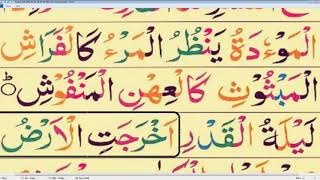 الْمَوْءٗدَةُ يَنْظُرُ الْمَرْءُ كَالْفَرَاشِ
الْمَبْثُوْثِ كَالْعِهْنِ الْمَنْفُوْشِ ؕ
لَيْلَةُ الْقَدْرِ اَخْرَجَتِ الْاَرْضُ